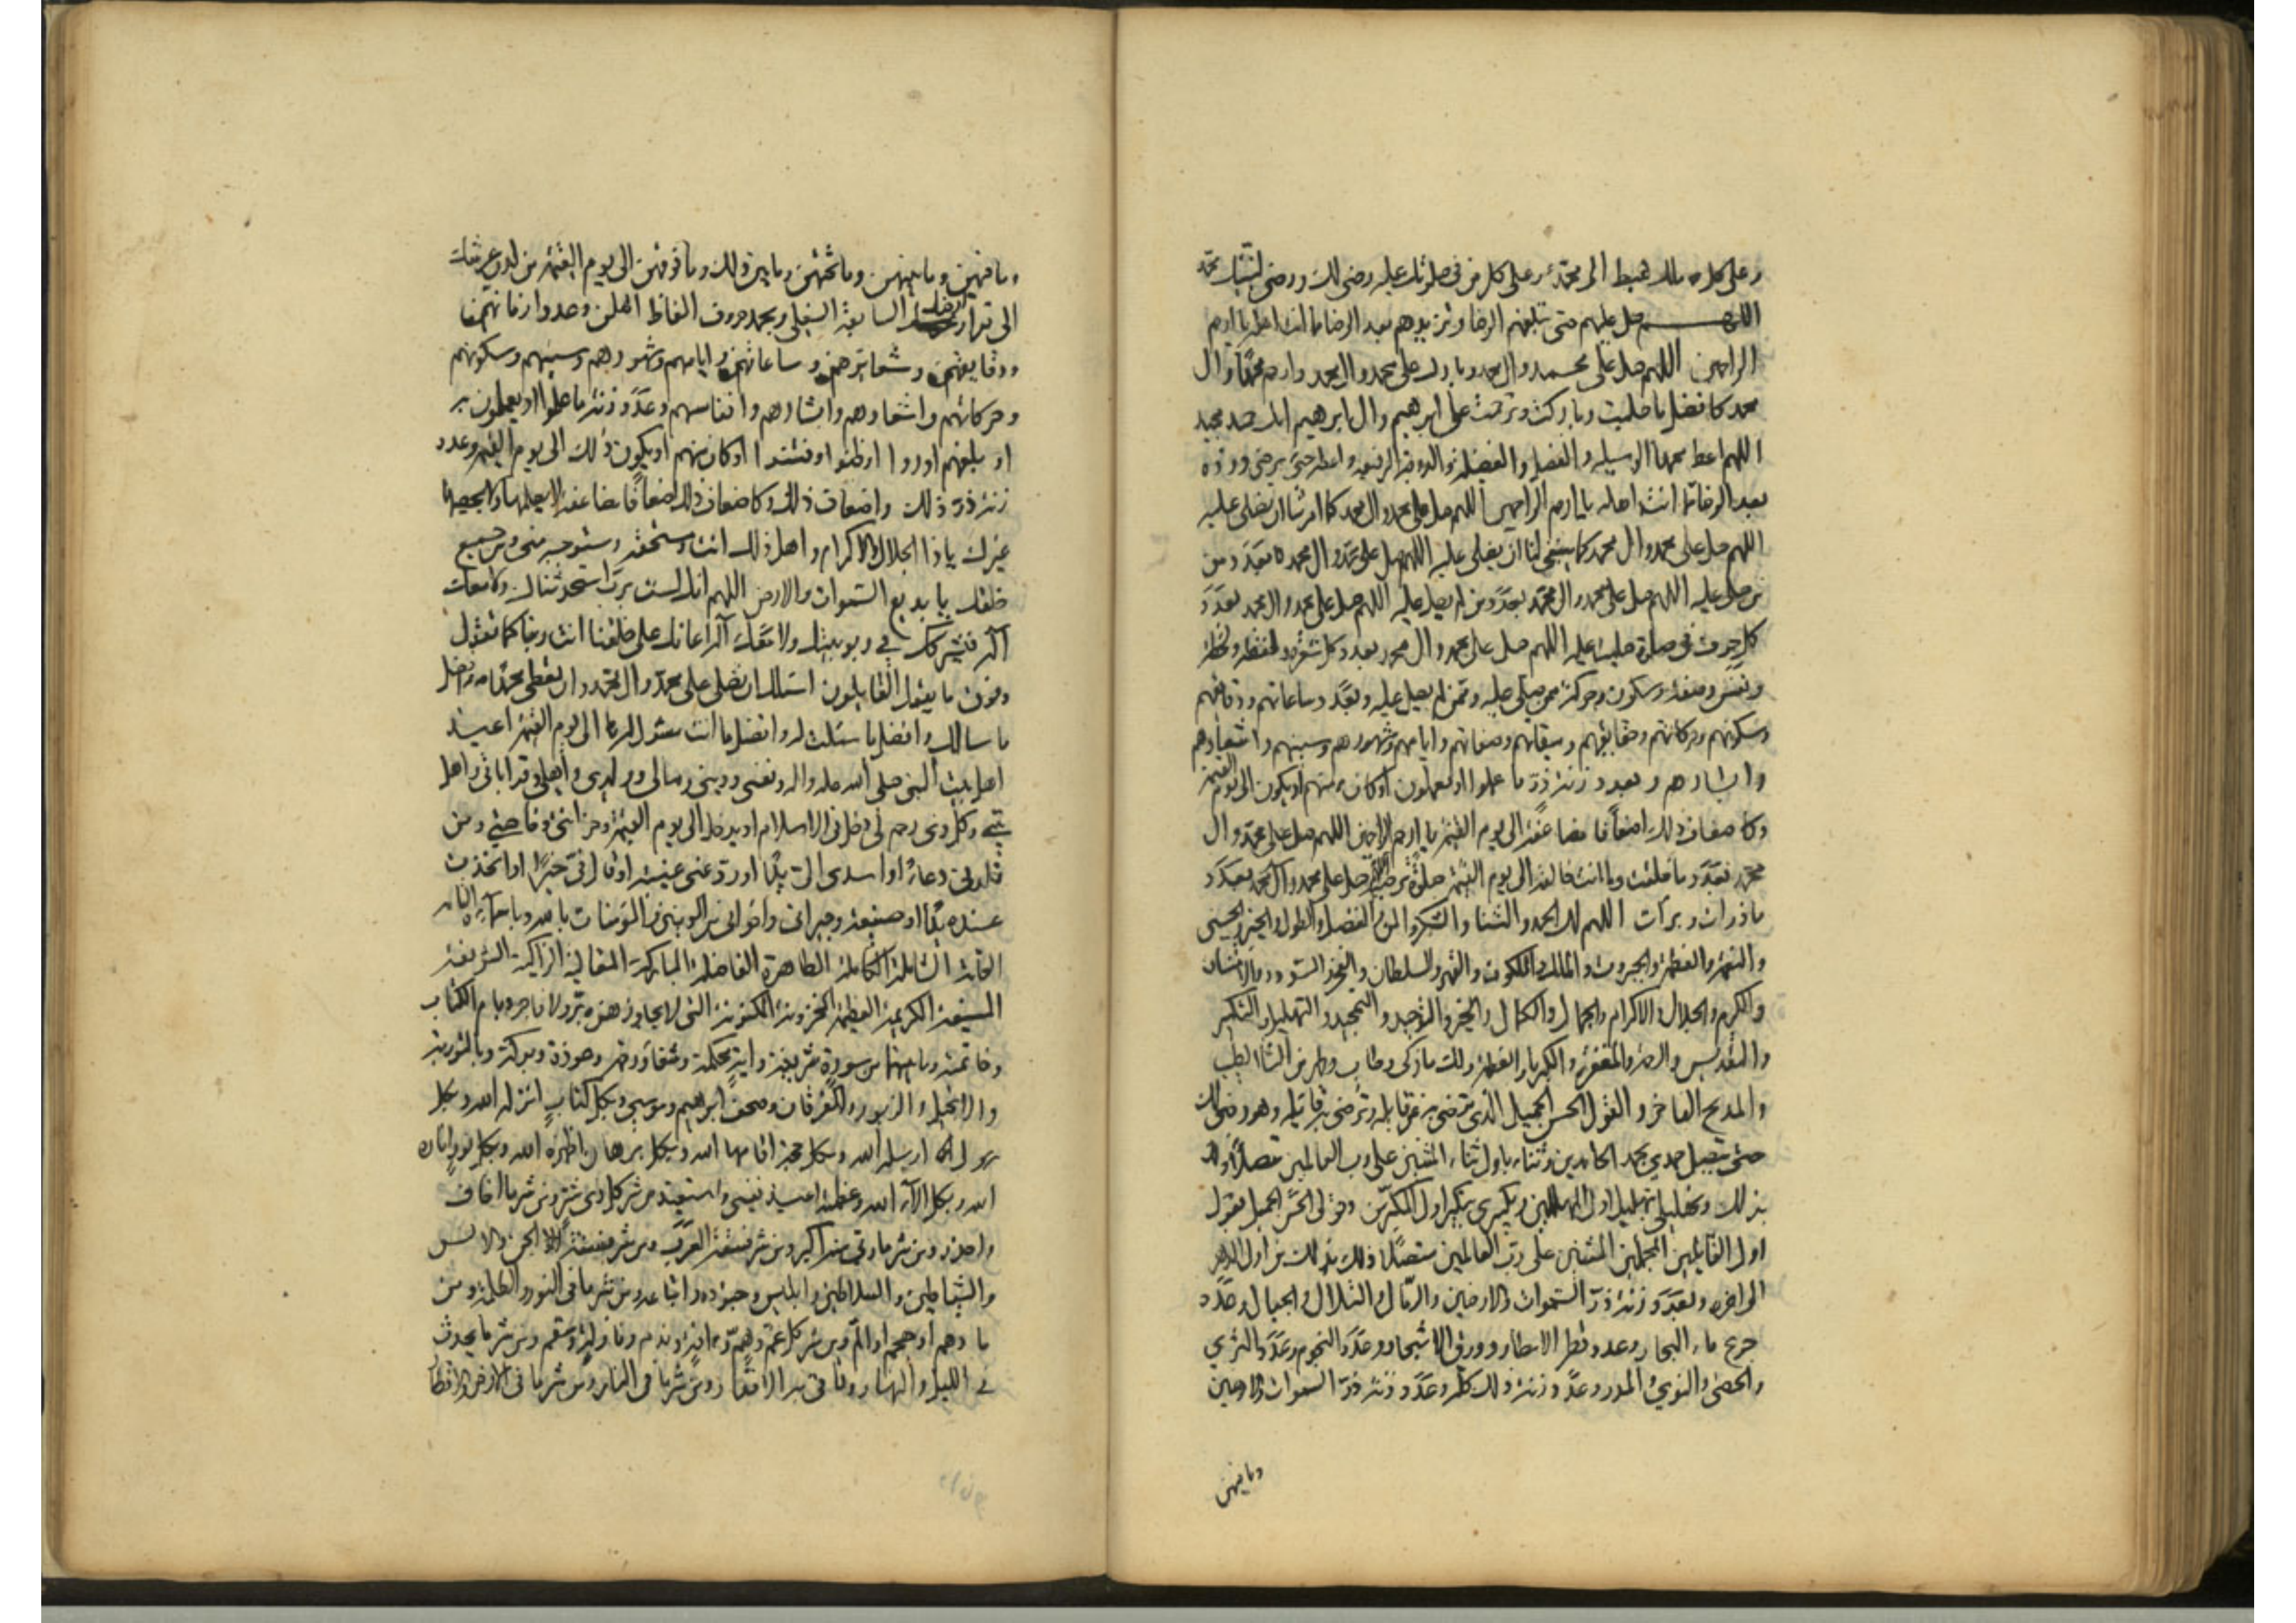 وعلى كل ملك هبط الى محمد وعلى كل من في صلوتك عليه رضى لك ورضى لنبيك محمد
اللهم صل عليهم حتى تبلغهم الرضا وتزيدهم بعد الرضا مما انت اهله يا ارحم
الراحمين اللهم صل على محمد وال محمد وبارك على محمد وال محمد وارحم محمدا وال
محمد كافضل ما صليت وباركت وترحمت على ابرهيم وال ابرهيم انك حميد مجيد
اللهم اعط محمدا الوسيله والفضل والفضيلة والدرجة الرفيعه واعطه حتى يرضى وزده
بعد الرضا مما انت اهله يا ارحم الراحمين اللهم صل على محمد وال محمد كما امرتنا ان نصلى عليه
اللهم صل على محمد وال محمد كما ينبغى لنا ان نصلى عليه اللهم صل على محمد وال محمد بعدد من
صلى عليه اللهم صل على محمد وال محمد بعدد من لم يصل عليه اللهم صل على محمد وال محمد بعدد
كل حرف في صلوة صليت عليه اللهم صل على محمد وال محمد بعدد كل شعرة ولفظة ولحظة
ونفس وصفة وسكون وحركة ممن صلى عليه وممن لم يصل عليه وبعدد ساعاتهم ودقايقهم
وسكونهم وحركاتهم وحقايقهم وميقاتهم وصفاتهم وايامهم وشهورهم وسنيهم واشعارهم
وابشارهم وبعدد زنة ذر ما عملوا او يعملون او كان منهم او يكون الى يوم القيمة
وكاضعاف ذلك اضعافا مضاعفة الى يوم القيمة يا ارحم الراحمين اللهم صل على محمد وال
محمد بعدد ما خلقت وما انت خالقه الى يوم القيمة صلوة ترضيه اللهم صل على محمد وآل محمد بعدد
ما ذرات وبرات اللهم لك الحمد والثنا والشكر والمن والفضل والطول والخير والحسنى
والنعمة والعظمة والجبروت والملك والملكوت والقهر والسلطان والفخر والسودد والامتنان
والكرم والجلال والاكرام والجمال والكمال والخير والتوحيد والتمجيد والتهليل والتكبير
والتقديس والرحمة والمغفرة والكبريا والعظمة ولك ما زكى وطاب وطهر من الثنا الطيب
والمديح الفاخر والقول الحسن الجميل الذى ترضى به عن قايله وترضى به قايله وهو رضى لك
حتى يتصل حمدي بحمد الحامدين وثنائى باول ثناء المثنين على رب العالمين متصلا ذلك
بذلك وتهليلى بتهليل اول المهللين وتكبيرى بتكبير اول المكبرين وقولى الحسن الجميل بقول
اول القايلين المجملين المثنين على رب العالمين متصلا ذلك بذلك من اول الدهر
الى اخره وبعدد زنة ذر السموات والارضين والرمال والتلال والجبال وعدد
جرع ماء البحار وعدد قطر الامطار وورق الاشجار وعدد النجوم وعدد الثرى
والحصى والنوى والمدر وعدد زنة ذلك كله وعدد زنة ذر السموات والارضين
وما فيهن
وما فيهن وما بينهن وما تحتهن وما بين ذلك وما فوقهن الى يوم القيمة من لدن عرشك
الى قرار ارضك السابعة السفلى وبعدد حروف الفاظ اهلهن وعدد ازمانهم
ودقايقهم وشعايرهم وساعاتهم وايامهم وشهورهم وسنيهم وسكونهم
وحركاتهم واشعارهم وابشارهم وانفاسهم وعدد زنة ما عملوا او يعملون به
او بلغهم او راوا او ظنوا او فطنوا او كان منهم او يكون ذلك الى يوم القيمة وعدد
زنة ذر ذلك واضعاف ذلك وكاضعاف ذلك اضعافا مضاعفة لا يعلمها ولا يحصيها
غيرك يا ذا الجلال والاكرام واهل ذلك انت ومستحقه ومستوجبه منى ومن جميع
خلقك يا بديع السموات والارض اللهم انك لست برب استحدثناك ولا معك
اله فيشركك في ربوبيتك ولا معك اله اعانك على خلقنا انت ربنا كما نقول
وفوق ما يقول القايلون اسئلك ان تصلى على محمد وال محمد وان تعطى محمدا افضل
ما سالك وافضل ما سئلت له وافضل ما انت مسئول له الى يوم القيمة اعيذ
اهل بيت النبى صلى الله عليه واله ونفسى ودينى ومالى وولدى واهلى وقراباتى واهل
بيتى وكل ذى رحم لى دخل فى الاسلام او يدخل الى يوم القيمة وحزانتى وخاصتي ومن
قلدنى دعاء او اسدى الى يدا او رد عنى غيبة او قال فى خيرا او اتخذت
عنده يدا او صنيعة وجيرانى واخوانى من المومنين والمومنات بالله وباسمائه
التامة الشاملة الكاملة الطاهرة الفاضلة المباركة المتعالية الزاكية الشريفة
المنيفة الكريمة العظيمة المخزونة المكنونة التى لا يجاوزهن بر ولا فاجر وبام الكتاب
وخاتمته وما بينهما من سورة شريفة واية محكمة وشفا ورحمة وعوذة وبركة وبالتورية
والانجيل والزبور والفرقان وصحف ابرهيم وموسى وبكل كتاب انزله الله وبكل
رسول ارسله الله وبكل حجة اقامها الله وبكل برهان اظهره الله وبكل نور اناره
الله وبكل الاء الله وعظمته اعيذ نفسى واستعيذ من شر كل ذى شر ومن شر ما اخاف
واحذر ومن شر ما ربى منه اكبر ومن شر فسقة العرب ومن شر فسقة الجن والانس
والشياطين والسلاطين وابليس وجنوده واتباعه ومن شر ما فى النور والظلمة ومن شر
ما دهم او هجم او الم ومن شر كل غم وهم وآفة وندم ونازلة وسقم ومن شر ما يحدث
في الليل والنهار وتاتى به الاقدار ومن شر ما فى النار ومن شر ما فى الارض والاقطار